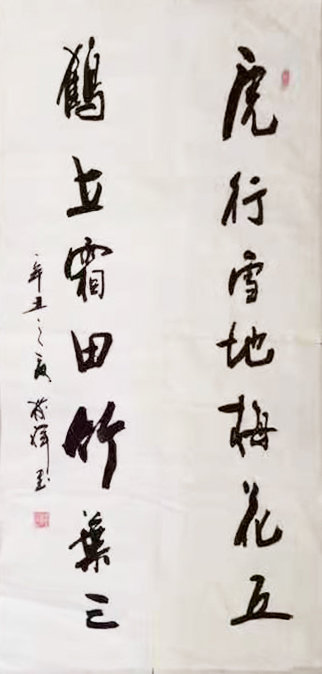 虎行雪地梅花五
鹤立霜田竹葉三
辛丑之夏